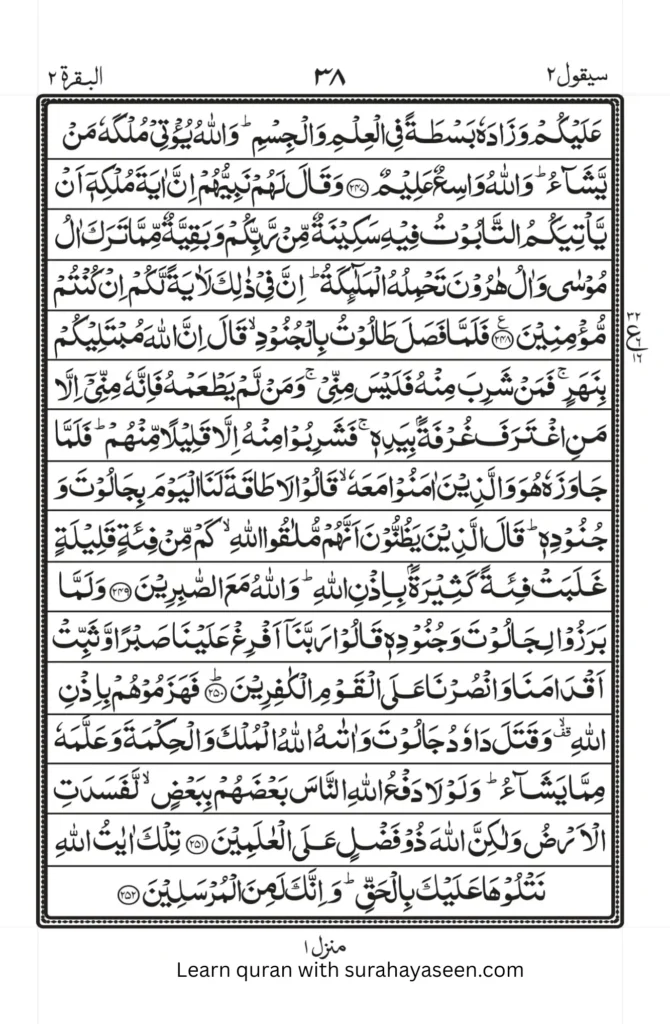 سيقول ٢ ٣٨ البقرة ٢
عَلَيْكُمْ وَزَادَهٗ بَسْطَةً فِي الْعِلْمِ وَالْجِسْمِ ؕ وَاللّٰهُ يُؤْتِيْ مُلْكَهٗ مَنْ
يَّشَآءُ ؕ وَاللّٰهُ وَاسِعٌ عَلِيْمٌ ﴿۲۴۷﴾ وَقَالَ لَهُمْ نَبِيُّهُمْ اِنَّ اٰيَةَ مُلْكِهٖۤ اَنْ
يَّاْتِيَكُمُ التَّابُوْتُ فِيْهِ سَكِيْنَةٌ مِّنْ رَّبِّكُمْ وَبَقِيَّةٌ مِّمَّا تَرَكَ اٰلُ
مُوْسٰى وَاٰلُ هٰرُوْنَ تَحْمِلُهُ الْمَلٰٓئِكَةُ ؕ اِنَّ فِيْ ذٰلِكَ لَاٰيَةً لَّكُمْ اِنْ كُنْتُمْ
مُّؤْمِنِيْنَ ﴿۲۴۸﴾ ع فَلَمَّا فَصَلَ طَالُوْتُ بِالْجُنُوْدِ ۙ قَالَ اِنَّ اللّٰهَ مُبْتَلِيْكُمْ
٣٢
ع
٦
١٦
بِنَهَرٍ ۚ فَمَنْ شَرِبَ مِنْهُ فَلَيْسَ مِنِّيْ ۚ وَمَنْ لَّمْ يَطْعَمْهُ فَاِنَّهٗ مِنِّيْۤ اِلَّا
مَنِ اغْتَرَفَ غُرْفَةًۢ بِيَدِهٖ ۚ فَشَرِبُوْا مِنْهُ اِلَّا قَلِيْلًا مِّنْهُمْ ؕ فَلَمَّا
جَاوَزَهٗ هُوَ وَالَّذِيْنَ اٰمَنُوْا مَعَهٗ ۙ قَالُوْا لَا طَاقَةَ لَنَا الْيَوْمَ بِجَالُوْتَ وَ
جُنُوْدِهٖ ؕ قَالَ الَّذِيْنَ يَظُنُّوْنَ اَنَّهُمْ مُّلٰقُوا اللّٰهِ ۙ كَمْ مِّنْ فِئَةٍ قَلِيْلَةٍ
غَلَبَتْ فِئَةً كَثِيْرَةًۢ بِاِذْنِ اللّٰهِ ؕ وَاللّٰهُ مَعَ الصّٰبِرِيْنَ ﴿۲۴۹﴾ وَلَمَّا
بَرَزُوْا لِجَالُوْتَ وَجُنُوْدِهٖ قَالُوْا رَبَّنَاۤ اَفْرِغْ عَلَيْنَا صَبْرًا وَّثَبِّتْ
اَقْدَامَنَا وَانْصُرْنَا عَلَى الْقَوْمِ الْكٰفِرِيْنَ ﴿۲۵۰﴾ ؕ فَهَزَمُوْهُمْ بِاِذْنِ
اللّٰهِ ۙ قف وَقَتَلَ دَاوٗدُ جَالُوْتَ وَاٰتٰىهُ اللّٰهُ الْمُلْكَ وَالْحِكْمَةَ وَعَلَّمَهٗ
مِمَّا يَشَآءُ ؕ وَلَوْلَا دَفْعُ اللّٰهِ النَّاسَ بَعْضَهُمْ بِبَعْضٍ ۙ لَّفَسَدَتِ
الْاَرْضُ وَلٰكِنَّ اللّٰهَ ذُوْ فَضْلٍ عَلَى الْعٰلَمِيْنَ ﴿۲۵۱﴾ تِلْكَ اٰيٰتُ اللّٰهِ
نَتْلُوْهَا عَلَيْكَ بِالْحَقِّ ؕ وَاِنَّكَ لَمِنَ الْمُرْسَلِيْنَ ﴿۲۵۲﴾
منزل ١
Learn quran with surahayaseen.com